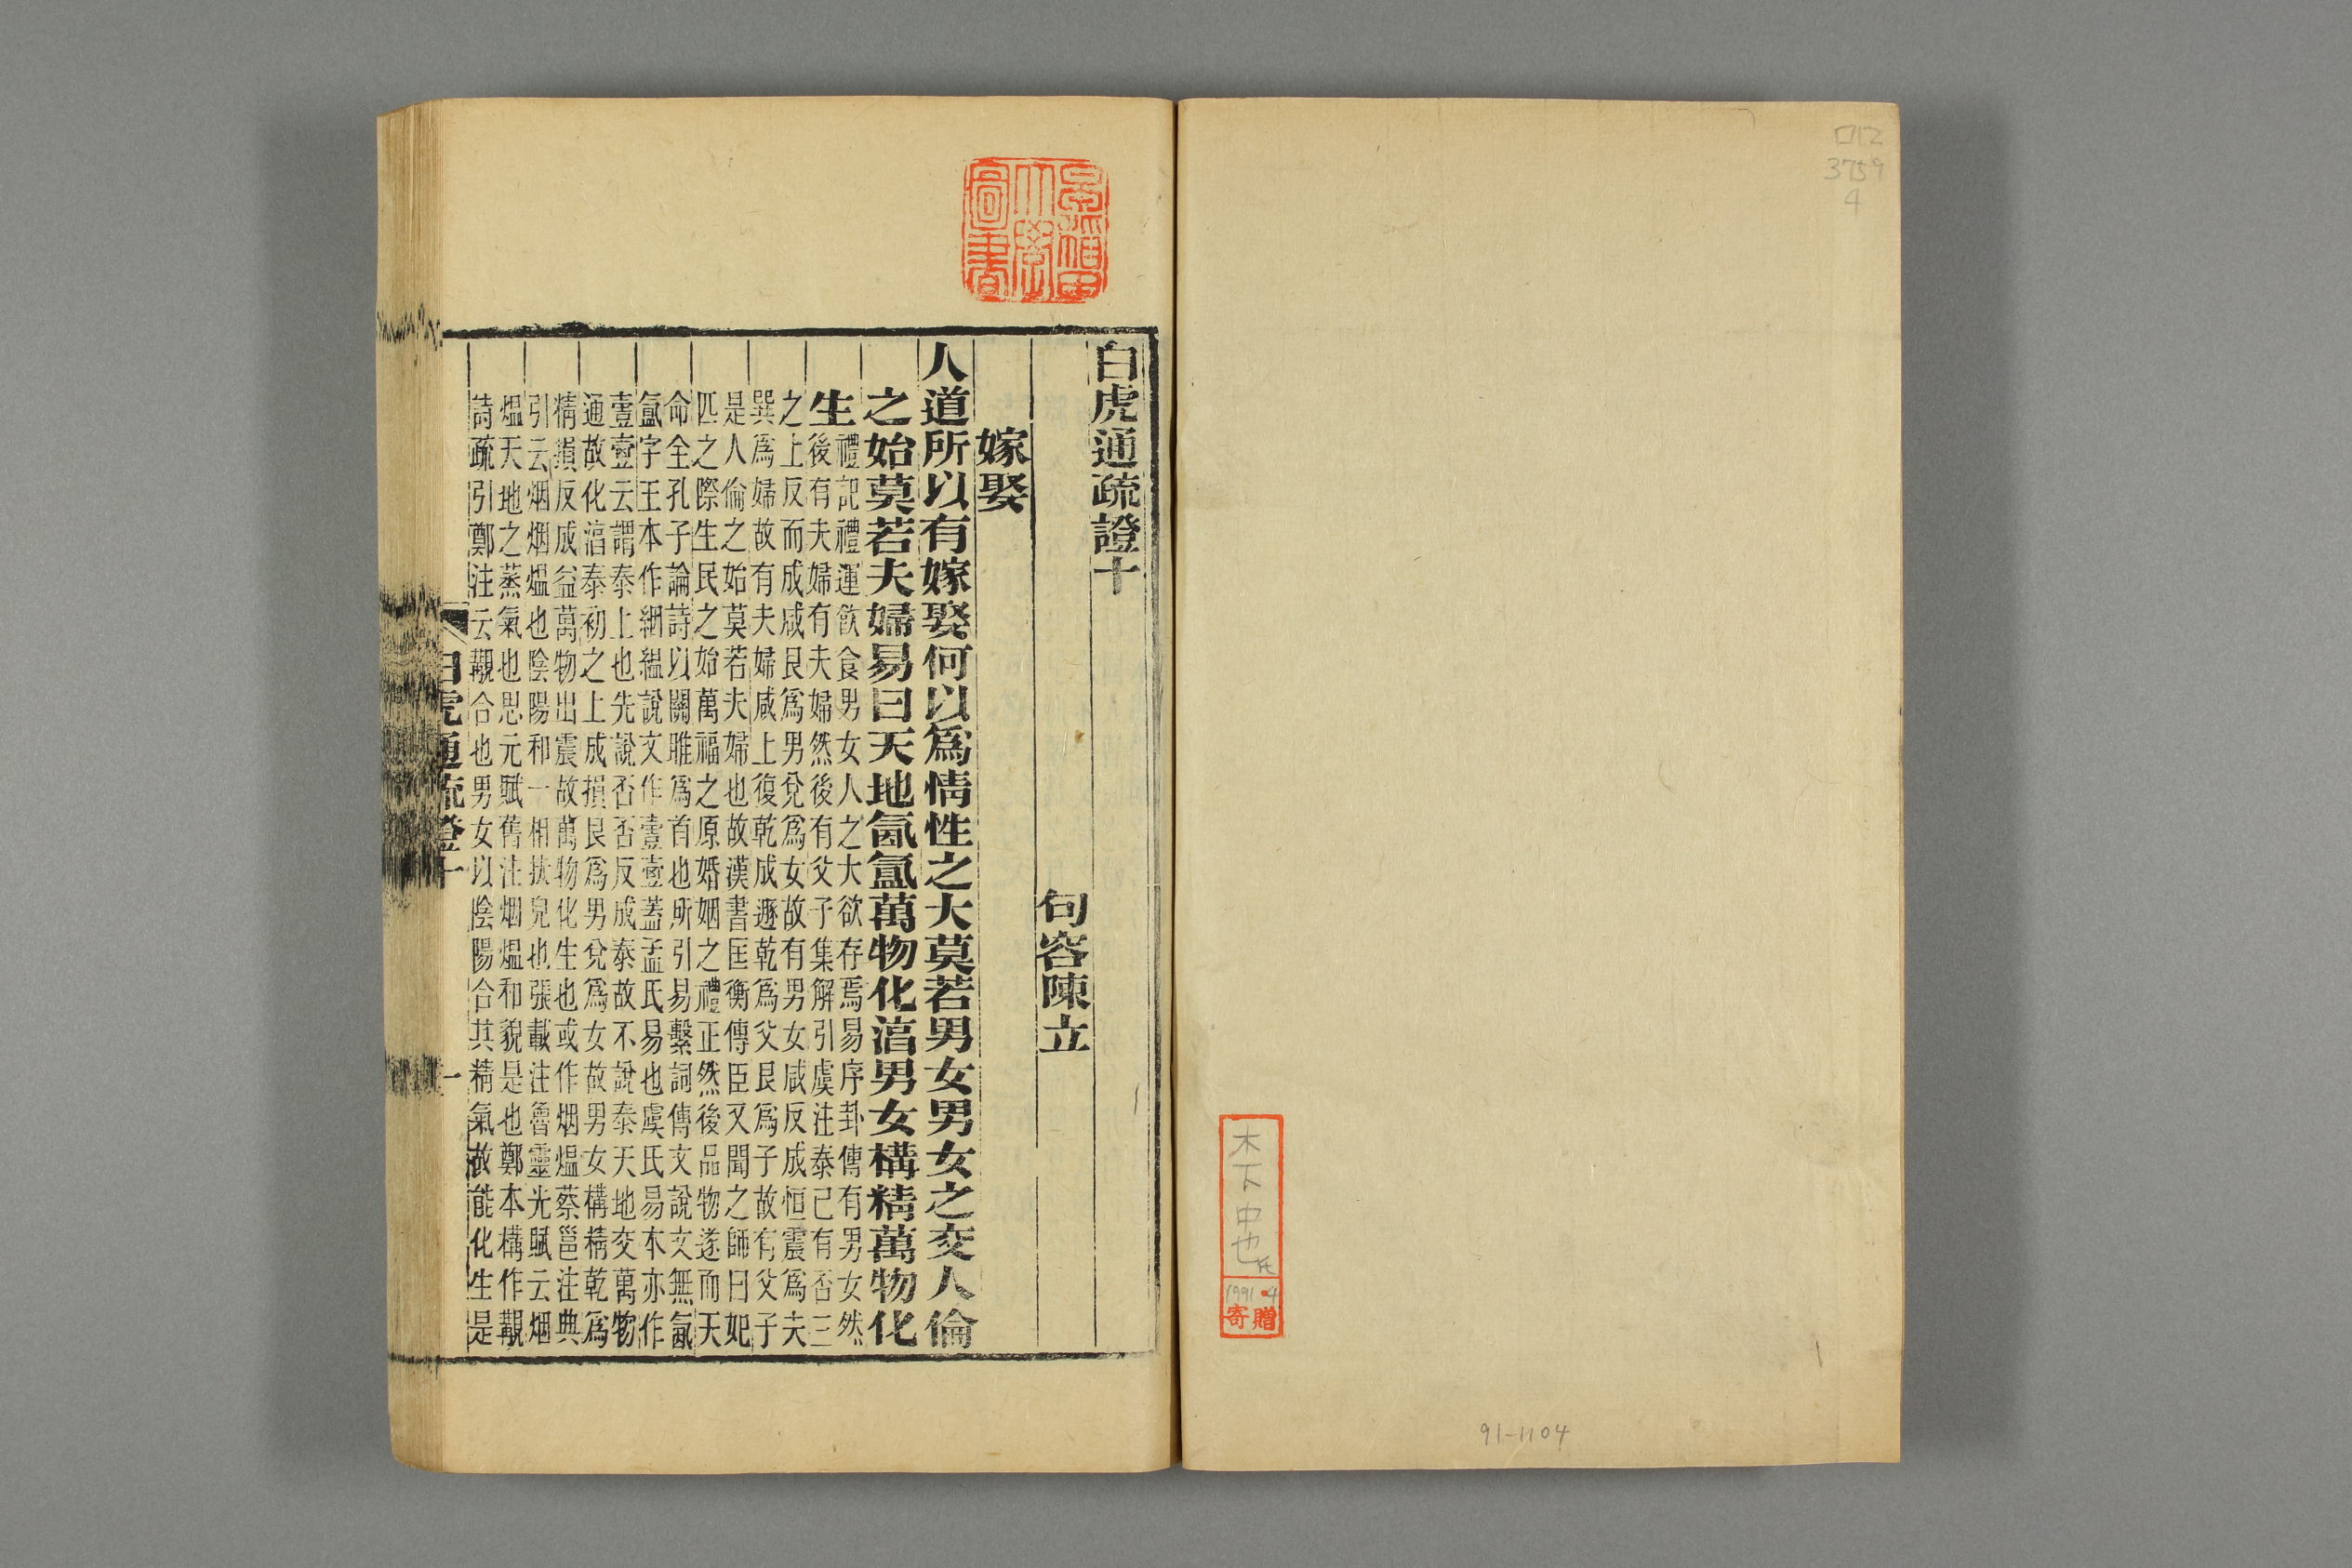 口12
3759
4
木下中也氏
1991.4
寄贈
91-1104
早稲田大學圖書
白虎通疏證十
句容陳立
嫁娶
人道所以有嫁娶何以爲情性之大莫若男女男女之交人倫
之始莫若夫婦易曰天地氤氳萬物化湻男女構精萬物化
生
禮記禮運飲食男女人之大欲存焉易序卦傳有男女然
後有夫婦有夫婦然後有父子集解引虞注泰已有否三
之上反而成咸艮爲男兌爲女故有男女咸反成恒震爲夫
巽爲婦故有夫婦咸上復乾成遯乾爲父艮爲子故有父子
是人倫之始莫若夫婦也故漢書匡衡傳臣又聞之師曰妃
匹之際生民之始萬福之原婚姻之禮正然後品物遂而天
命全孔子論詩以關雎爲首也所引易繫詞傳文說文無氤
氳字王本作絪縕說文作壹壺蓋孟氏易也虞氏易本亦作
壹壺云謂泰上也先說否否反成泰故不說泰天地交萬物
通故化湻泰初之上成損艮爲男兌爲女故男女構精乾爲
精損反成益萬物出震故萬物化生也或作烟熅蔡邕注典
引云烟烟熅也陰陽和一相扶皃也張載注魯靈光賦云烟
熅天地之蒸氣也思元賦舊注烟熅和貌是也鄭本構作覯
詩疏引鄭注云覯合也男女以陰陽合其精氣故能化生是
白虎通疏證十
一